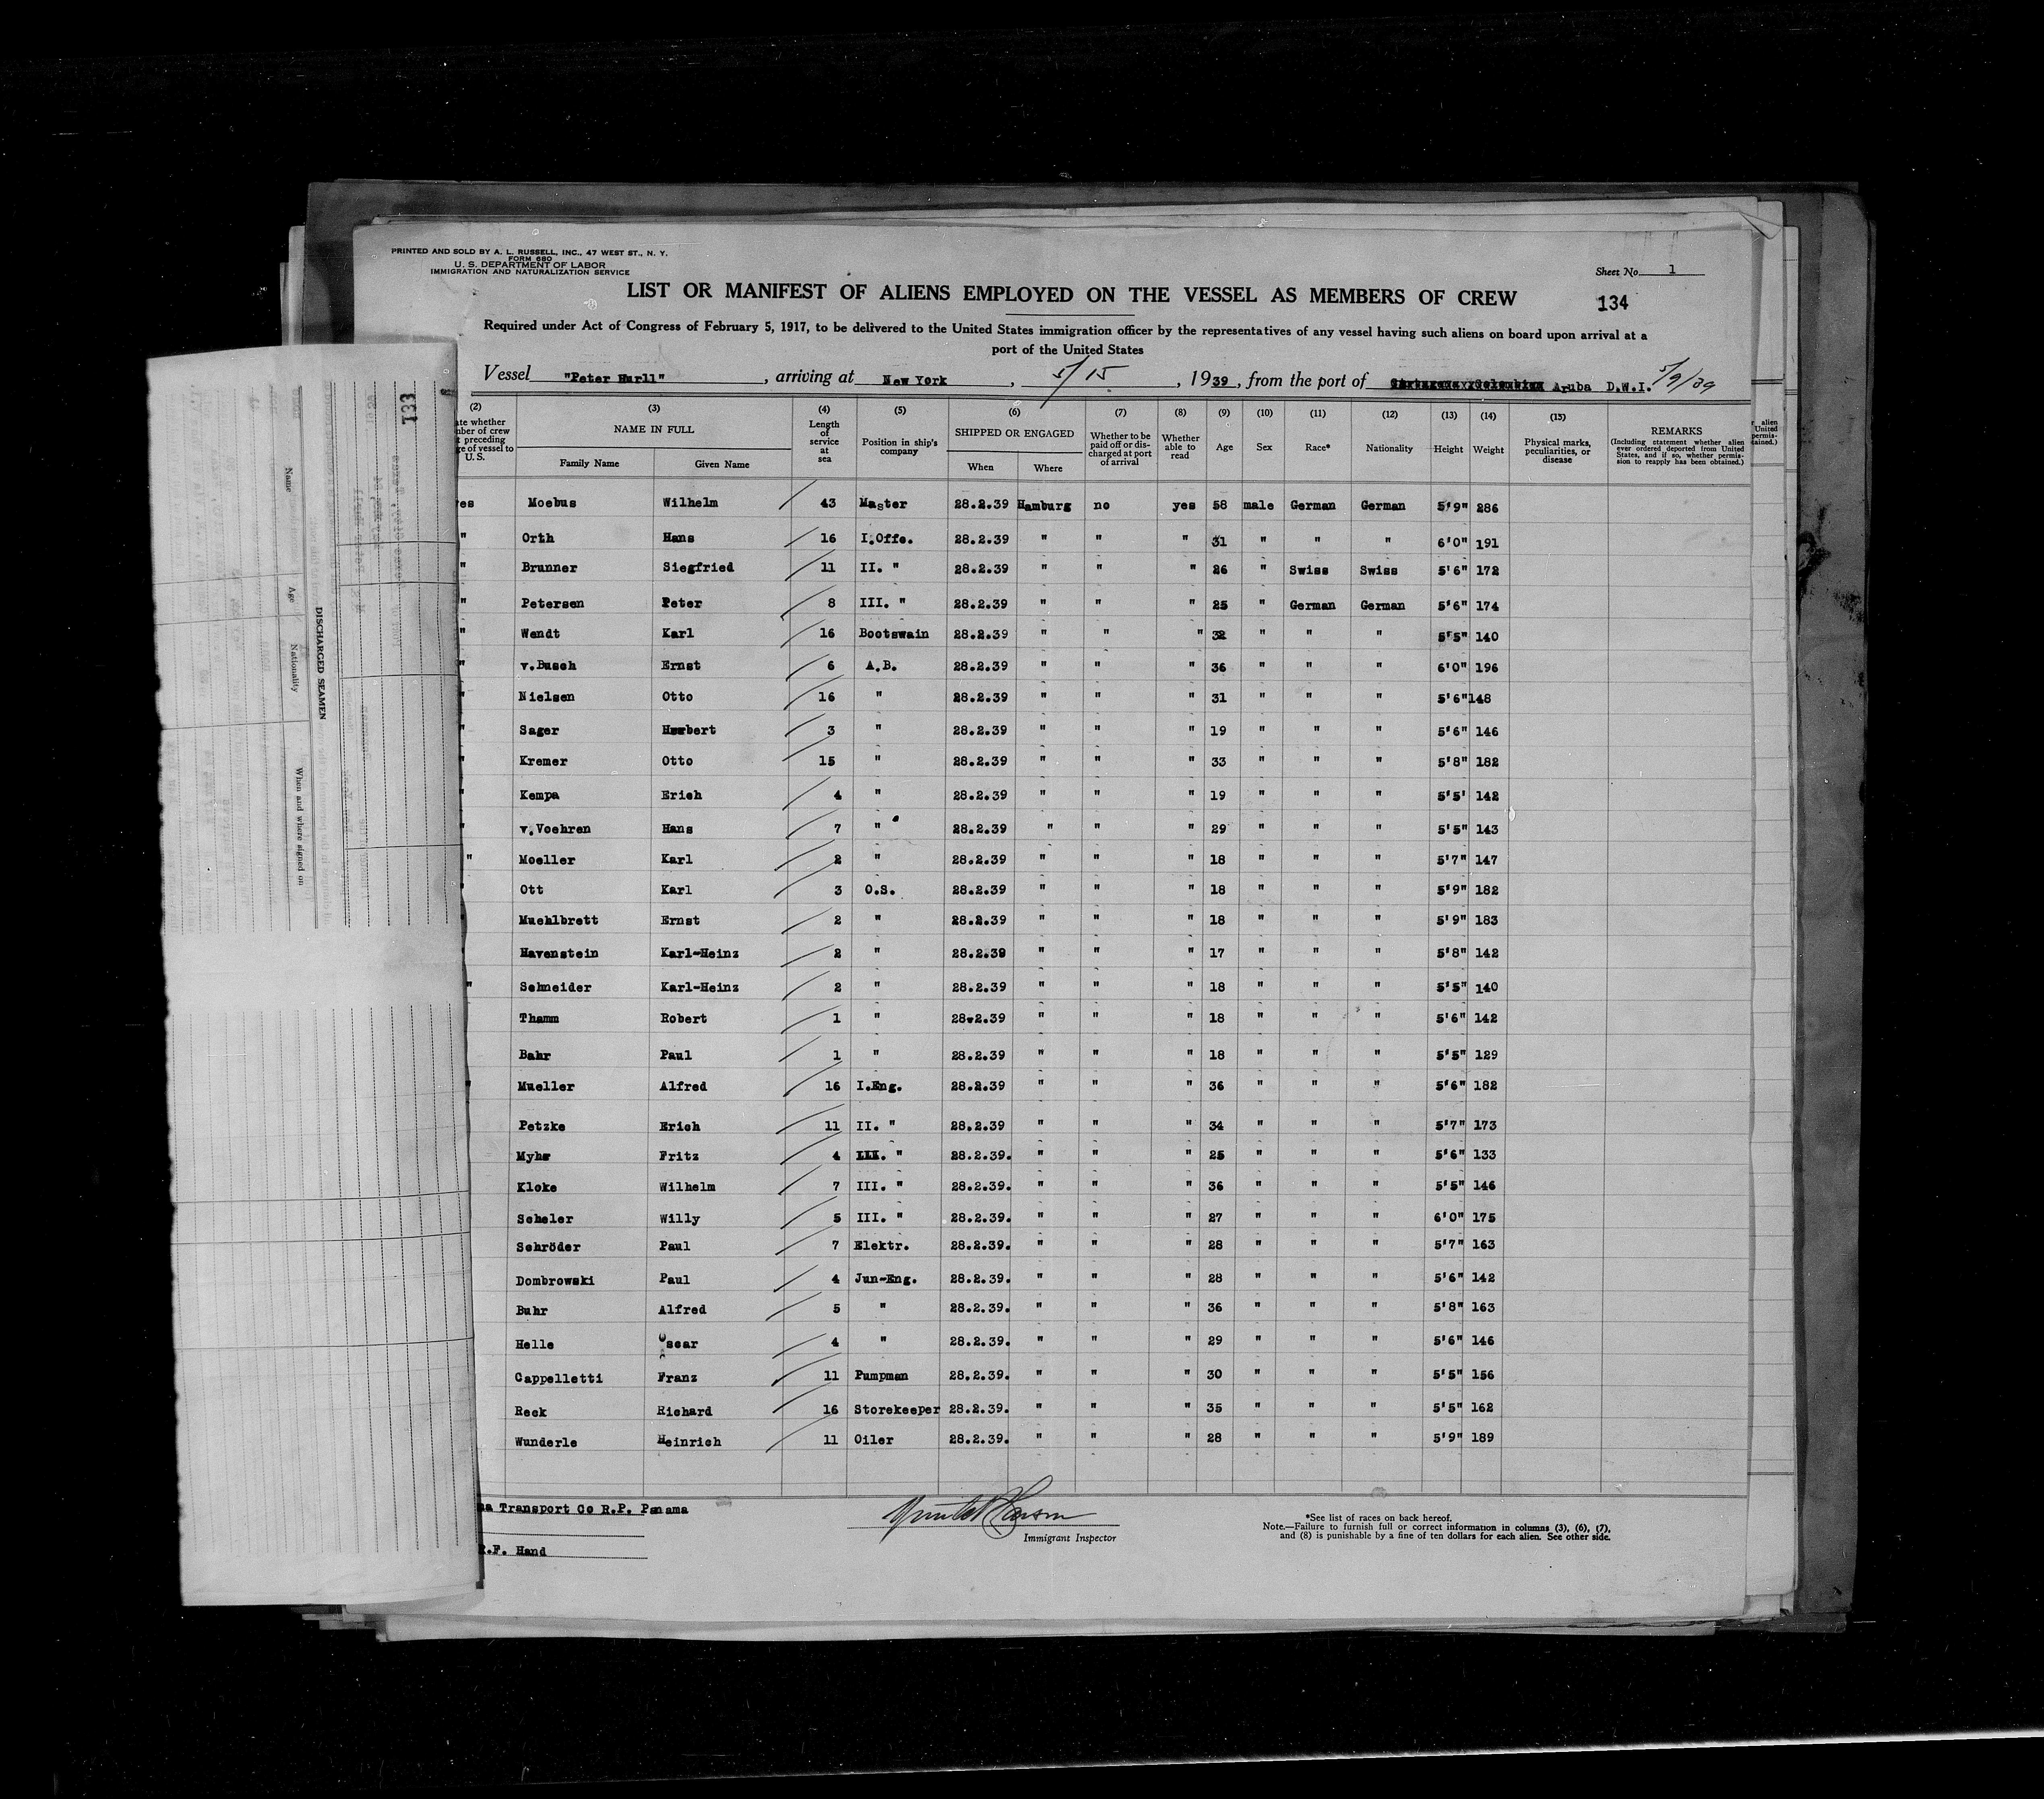 PRINTED AND SOLD BY A. L. RUSSELL, INC., 47 WEST ST., N. Y.
FORM 680
U. S. DEPARTMENT OF LABOR
IMMIGRATION AND NATURALIZATION SERVICE
Sheet No. 1
LIST OR MANIFEST OF ALIENS EMPLOYED ON THE VESSEL AS MEMBERS OF CREW
134
Required under Act of Congress of February 5, 1917, to be delivered to the United States immigration officer by the representatives of any vessel having such aliens on board upon arrival at a
port of the United States
Vessel "Peter Hurll", arriving at New York, 5/15, 1939, from the port of Aruba D.W.I. 5/9/39
133
DISCHARGED SEAMEN
Name Age Nationality When and where signed on
(2) (3) (4) (5) (6) (7) (8) (9) (10) (11) (12) (13) (14) (15)
whether of crew preceding of vessel to U.S.
NAME IN FULL
Family Name Given Name
Length of service at sea
Position in ship's company
SHIPPED OR ENGAGED
When Where
Whether to be paid off or discharged at port of arrival
Whether able to read
Age Sex Race* Nationality Height Weight
Physical marks, peculiarities, or disease
REMARKS
(Including statement whether alien ever ordered deported from United States, and if so, whether permission to reapply has been obtained.)
Moebus Wilhelm 43 Master 28.2.39 Hamburg no yes 58 male German German 5'9" 286
" Orth Hans 16 I.Offc. 28.2.39 " " " 31 " " " 6'0" 191
" Brunner Siegfried 11 II. " 28.2.39 " " " 26 " Swiss Swiss 5'6" 172
" Petersen Peter 8 III. " 28.2.39 " " " 25 " German German 5'6" 174
" Wendt Karl 16 Bootswain 28.2.39 " " " 32 " " " 5'5" 140
" v.Busch Ernst 6 A.B. 28.2.39 " " " 36 " " " 6'0" 196
" Nielsen Otto 16 " 28.2.39 " " " 31 " " " 5'6" 148
" Sager Herbert 3 " 28.2.39 " " " 19 " " " 5'6" 146
" Kremer Otto 15 " 28.2.39 " " " 33 " " " 5'8" 182
" Kempa Erich 4 " 28.2.39 " " " 19 " " " 5'5' 142
" v.Voehren Hans 7 " 28.2.39 " " " 29 " " " 5'5" 143
" Moeller Karl 2 " 28.2.39 " " " 18 " " " 5'7" 147
" Ott Karl 3 O.S. 28.2.39 " " " 18 " " " 5'9" 182
" Muehlbrett Ernst 2 " 28.2.39 " " " 18 " " " 5'9" 183
" Havenstein Karl-Heinz 2 " 28.2.39 " " " 17 " " " 5'8" 142
" Schneider Karl-Heinz 2 " 28.2.39 " " " 18 " " " 5'5" 140
Thamm Robert 1 " 28.2.39 " " " 18 " " " 5'6" 142
Bahr Paul 1 " 28.2.39 " " " 18 " " " 5'5" 129
" Mueller Alfred 16 I.Eng. 28.2.39 " " " 36 " " " 5'6" 182
Petzke Erich 11 II. " 28.2.39 " " " 34 " " " 5'7" 173
Myhr Fritz 4 III. " 28.2.39. " " " 25 " " " 5'6" 133
Kloke Wilhelm 7 III. " 28.2.39. " " " 36 " " " 5'5" 146
Scheler Willy 5 III. " 28.2.39. " " " 27 " " " 6'0" 175
Schröder Paul 7 Elektr. 28.2.39. " " " 28 " " " 5'7" 163
Dombrowski Paul 4 Jun-Eng. 28.2.39. " " " 28 " " " 5'6" 142
Buhr Alfred 5 " 28.2.39. " " " 36 " " " 5'8" 163
Helle Oscar 4 " 28.2.39. " " " 29 " " " 5'6" 146
Cappelletti Franz 11 Pumpman 28.2.39. " " " 30 " " " 5'5" 156
Reck Richard 16 Storekeeper 28.2.39. " " " 35 " " " 5'5" 162
Wunderle Heinrich 11 Oiler 28.2.39. " " " 28 " " " 5'9" 189
Transport Co R.P. Panama
R.F. Hand
Immigrant Inspector
*See list of races on back hereof.
Note.—Failure to furnish full or correct information in columns (3), (6), (7),
and (8) is punishable by a fine of ten dollars for each alien. See other side.